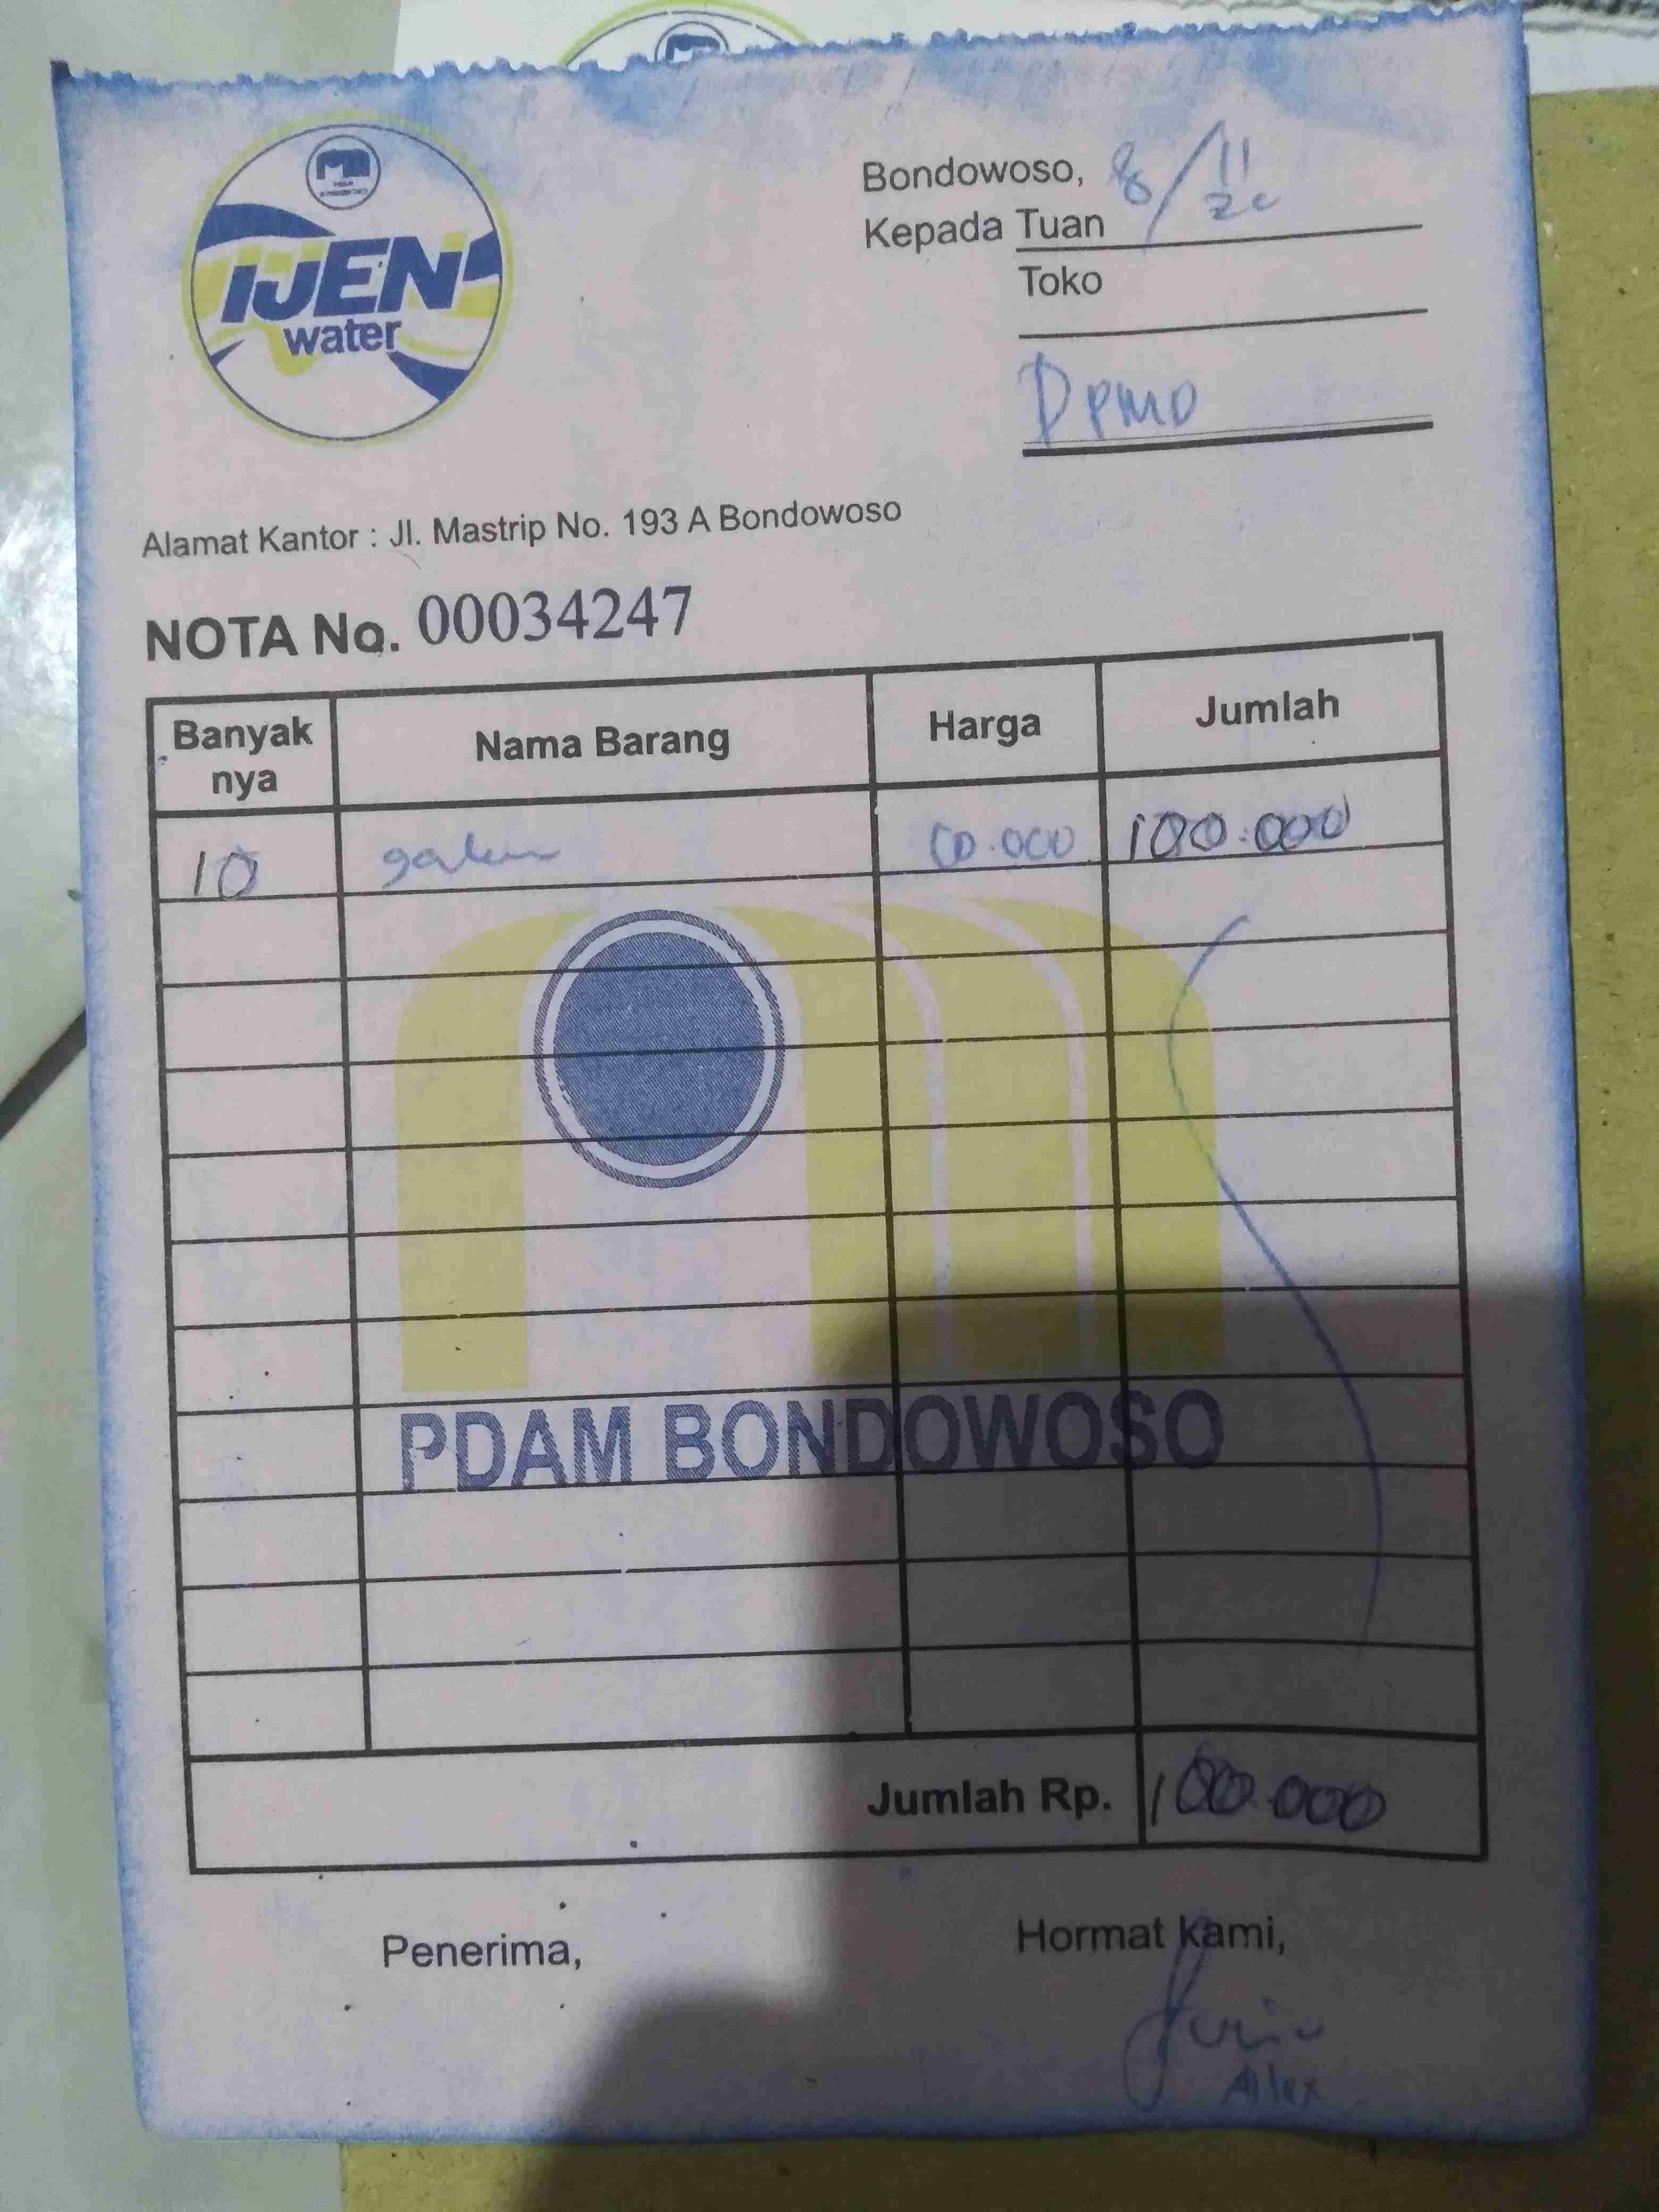 IJEN
water
Bondowoso, 8/11
Kepada Tuan
Toko
DPMD
Alamat Kantor : Jl. Mastrip No. 193 A Bondowoso
NOTA No. 00034247
Banyak nya Nama Barang Harga Jumlah
10 galon 10.000 100.000
PDAM BONDOWOSO
Jumlah Rp. 100.000
Penerima, Hormat kami,
Alex